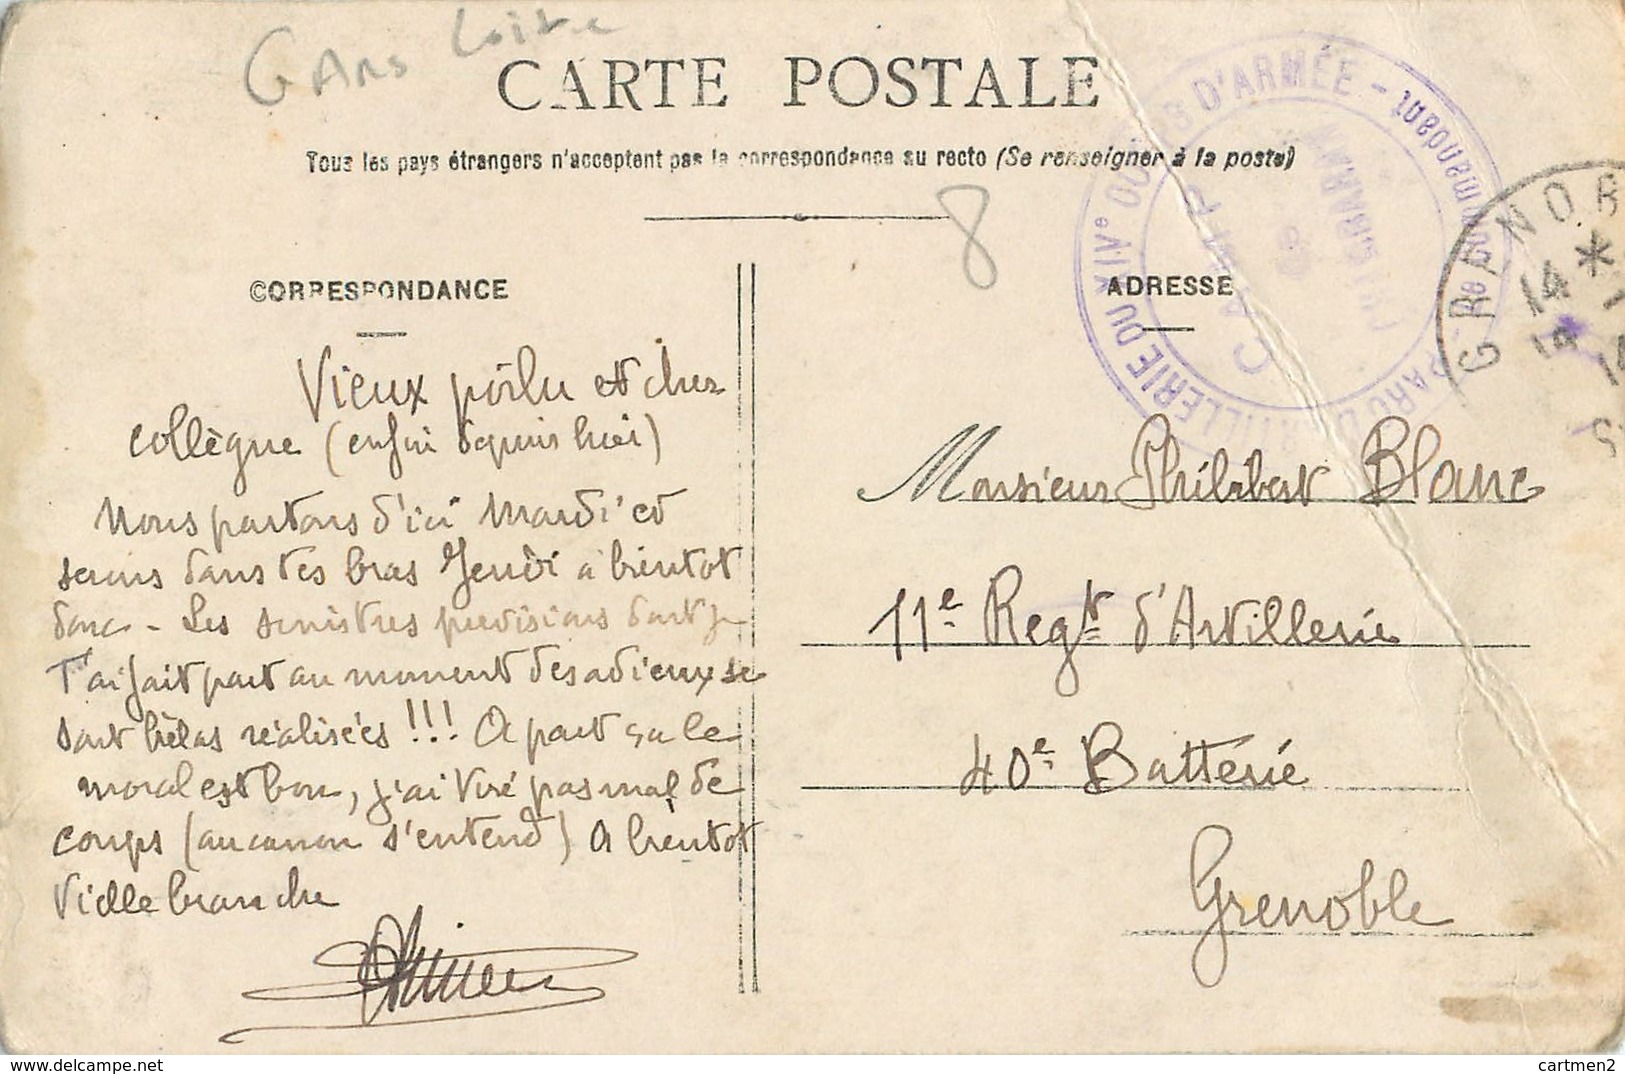 CARTE POSTALE
Tous les pays étrangers n'acceptent pas la correspondance au recto (Se renseigner à la poste)
8
CORRESPONDANCE
Vieux poilu et cher
collègue (enfin depuis hier)
Nous partons d'ici Mardi et
serons dans tes bras Jeudi à bientot
donc - Les sinistres prévisions dont je
t'ai fait part au moment des adieux se
sont hèlas réalisées !!! A part ça le
moral est bon, j'ai tiré pas mal de
coups (au canon s'entend) A bientot
Vielle branche
ADRESSE
Monsieur Philibert Blanc
11e Regt d'Artillerie
40e Batterie
Grenoble
PARC D'ARTILLERIE DU XIVe CORPS D'ARMÉE - Le Commandant
CAMP
GRENOB
14 *
cartmen2